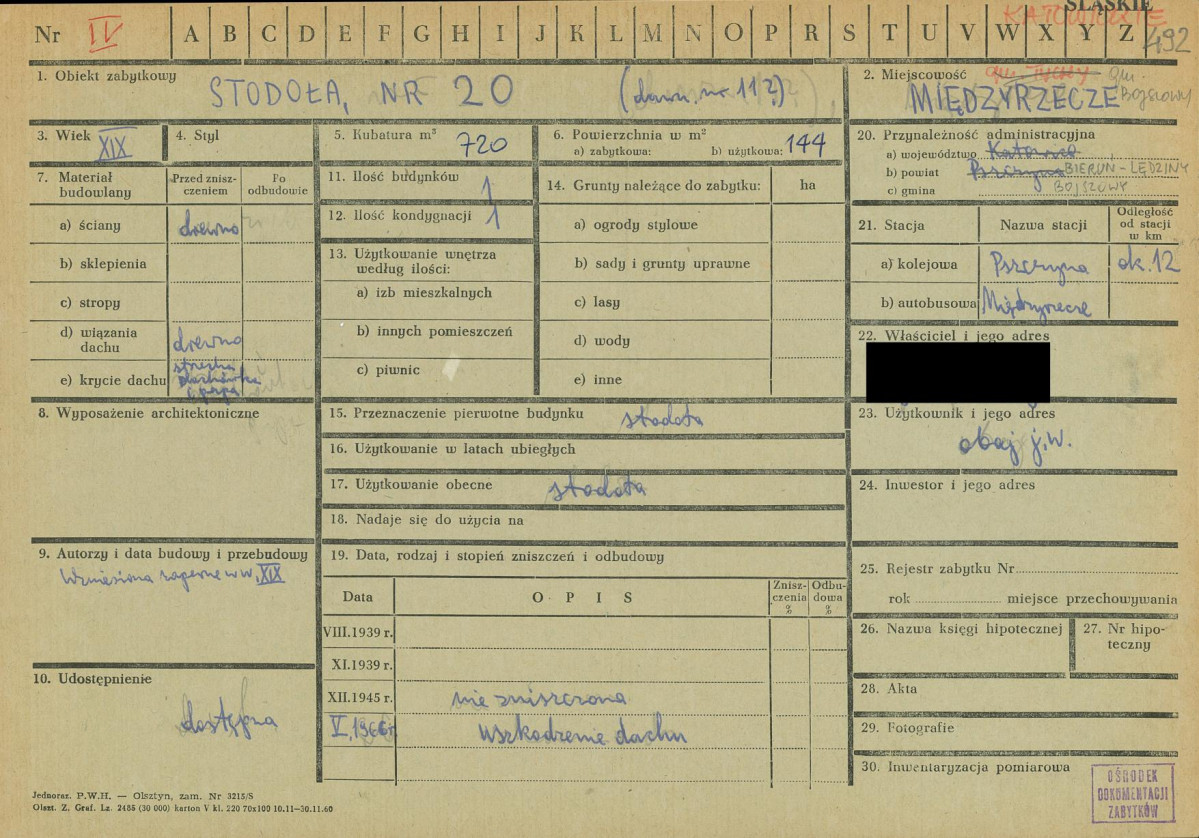 ŚLĄSKIE
KATOWICKIE
Nr IV A B C D E F G H I J K L M N O P R S T U V W X Y Z 492
1. Obiekt zabytkowy
STODOŁA, NR 20 (dawn. nr 112)
2. Miejscowość gm. Tychy gm.
MIĘDZYRZECZE BOJSZOWY
3. Wiek XIX
4. Styl
5. Kubatura m³ 720
6. Powierzchnia w m²
a) zabytkowa: b) użytkowa: 144
20. Przynależność administracyjna
a) województwo Katowice
b) powiat Pszczyna BIERUŃ-LĘDZINY
c) gmina BOJSZOWY
7. Materiał budowlany
Przed zniszczeniem
Po odbudowie
a) ściany drewno
b) sklepienia
c) stropy
d) wiązania dachu drewno
e) krycie dachu strzecha dachówka i papa
11. Ilość budynków 1
12. Ilość kondygnacji 1
13. Użytkowanie wnętrza
według ilości:
a) izb mieszkalnych
b) innych pomieszczeń
c) piwnic
14. Grunty należące do zabytku: ha
a) ogrody stylowe
b) sady i grunty uprawne
c) lasy
d) wody
e) inne
21. Stacja Nazwa stacji Odległość od stacji w km
a) kolejowa Pszczyna ok. 12
b) autobusowa Międzyrzecze
22. Właściciel i jego adres
8. Wyposażenie architektoniczne
15. Przeznaczenie pierwotne budynku stodoła
16. Użytkowanie w latach ubiegłych
17. Użytkowanie obecne stodoła
18. Nadaje się do użycia na
23. Użytkownik i jego adres
obaj j.w.
24. Inwestor i jego adres
9. Autorzy i data budowy i przebudowy
Wzniesiona zapewne w w. XIX
19. Data, rodzaj i stopień zniszczeń i odbudowy
Data OPIS Zniszczenia % Odbudowa %
VIII.1939 r.
XI.1939 r.
XII.1945 r. nie zniszczona
V.1966 r. uszkodzenie dachu
25. Rejestr zabytku Nr
rok miejsce przechowywania
26. Nazwa księgi hipotecznej
27. Nr hipoteczny
10. Udostępnienie
dostępna
28. Akta
29. Fotografie
30. Inwentaryzacja pomiarowa
OŚRODEK
DOKUMENTACJI
ZABYTKÓW
Jednoraz. P.W.H. — Olsztyn, zam. Nr 3215/S
Olszt. Z. Graf. Lz. 2485 (30 000) karton V kl. 220 70x100 10.11—30.11.60